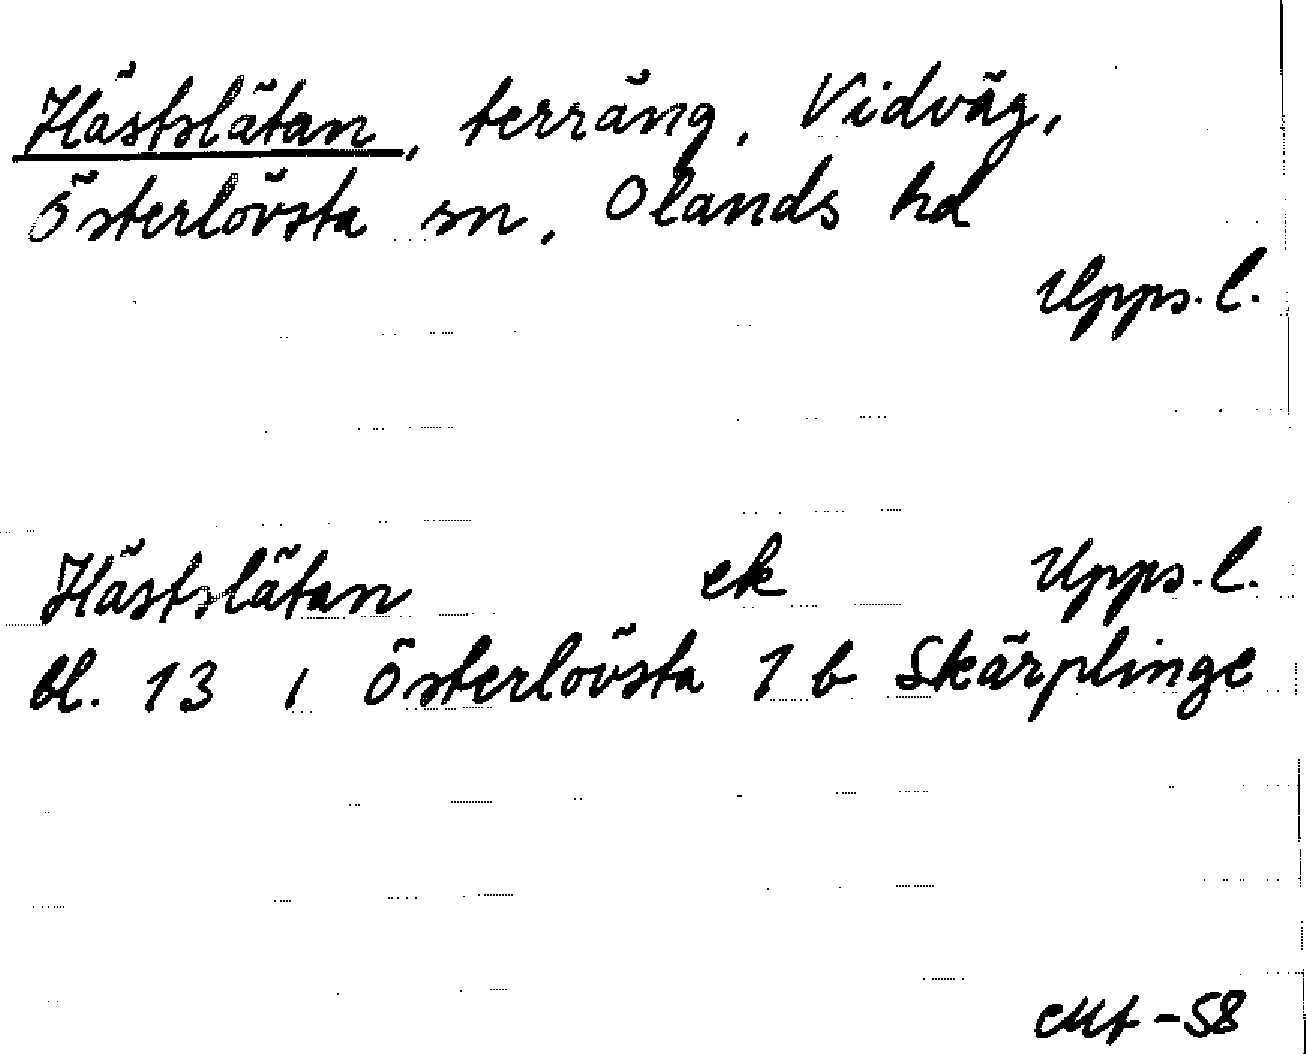 Hästslätan, terräng, Vidväg,
Österlövsta sn, Olands hd
Upps. l.
Hästslätan ek Upps. l.
bl. 13 i Österlövsta 1 b Skärplinge
-58